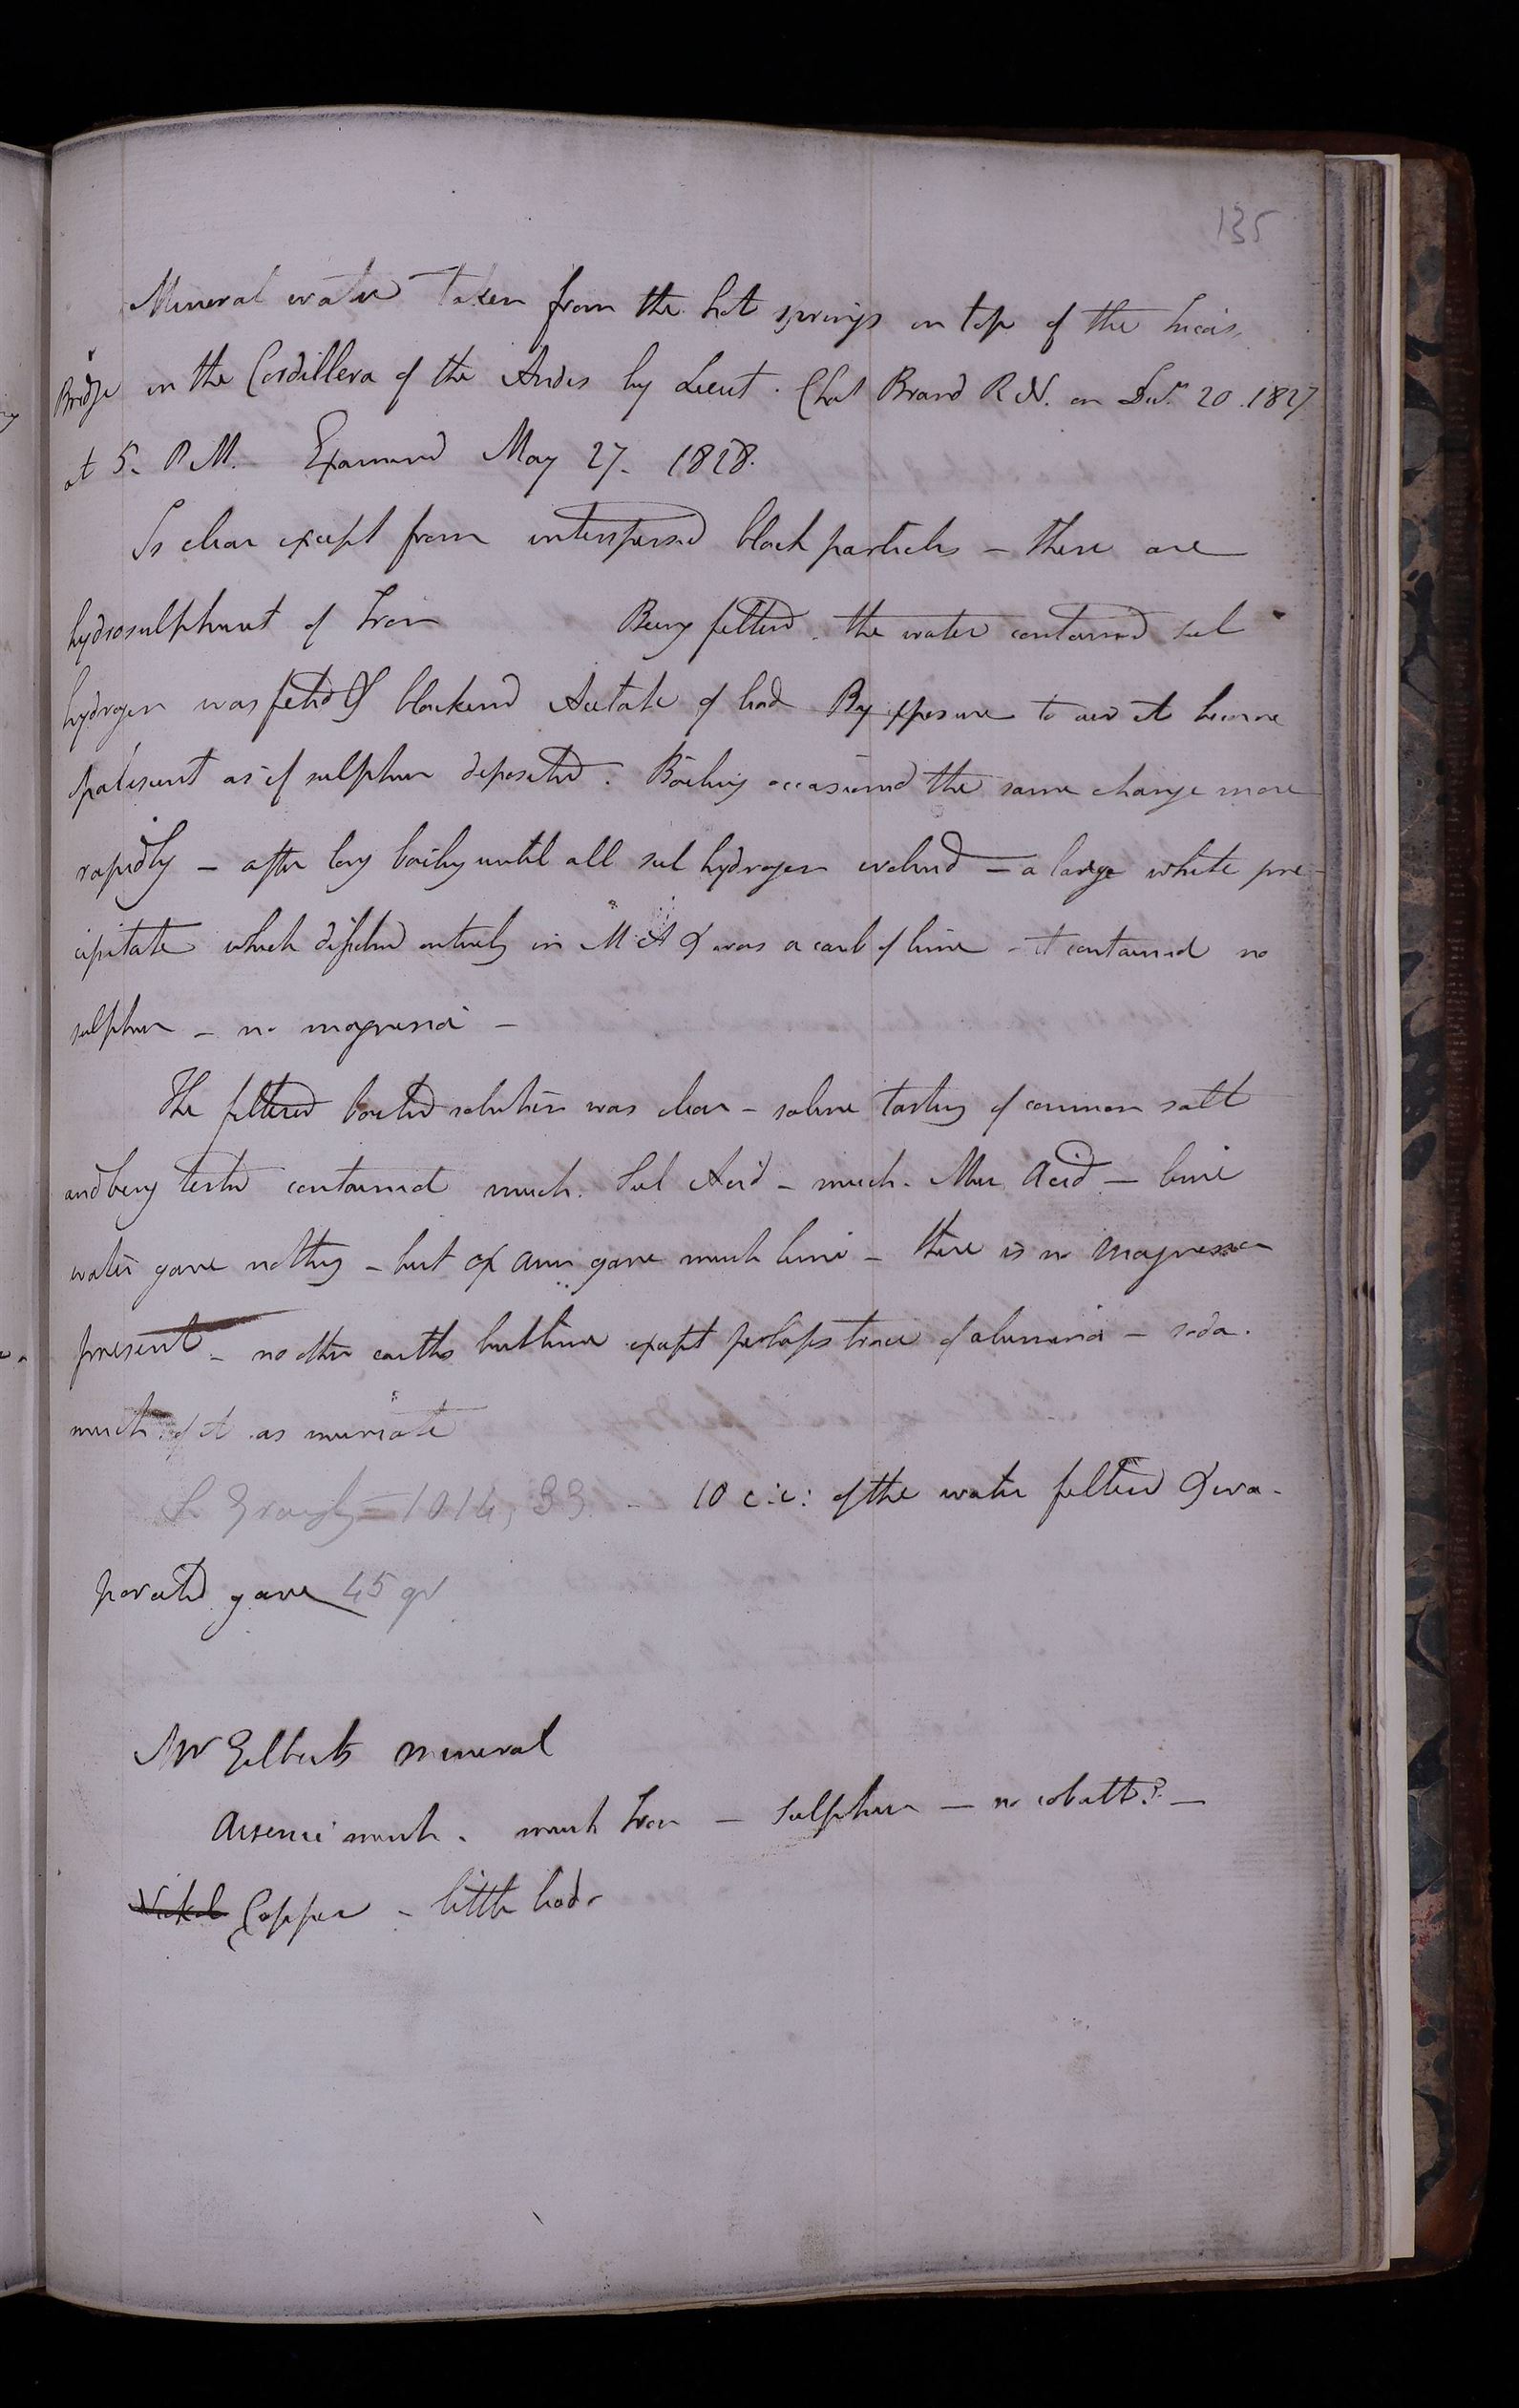 135
Mineral water Taken from the hot springs on top of the Incas
Bridge in the Cordillera of the Andes by Lieut. Chas Brand R N. on Decr 20. 1827
at 5. P M. Examined May 27. 1828.
Is clear except from interspersed black particles - these are
hydrosulphuret of Iron Being filtered. the water contained sul
hydrogen was fetid & blackened Acetate of lead By exposure to air it became
opalescent as if sulphur deposited. Boiling occasioned the same change more
rapidly - after long boiling until all sul hydrogen evolved - a large white pre-
cipitate which dissolved entirely in M A & was a carb of lime - it contained no
sulphur - no magnesia -
The filtered boiled solution was clear - saline tasting of common salt
and being tested contained much. Sul Acid - much. Mur Acid - lime
water gave nothing - but ox amm gave much lime - there is no magnesia
present - no other earths but lime except perhaps trace of alumina - soda.
much of it as muriate
S Gravity = 1014,33 - 10 c:i: of the water filtered & eva-
porated gave 45 gr
Mr Gilberts mineral
Arsenic much. much Iron - sulphur - no cobalt? -
Nickel Copper - little lead -